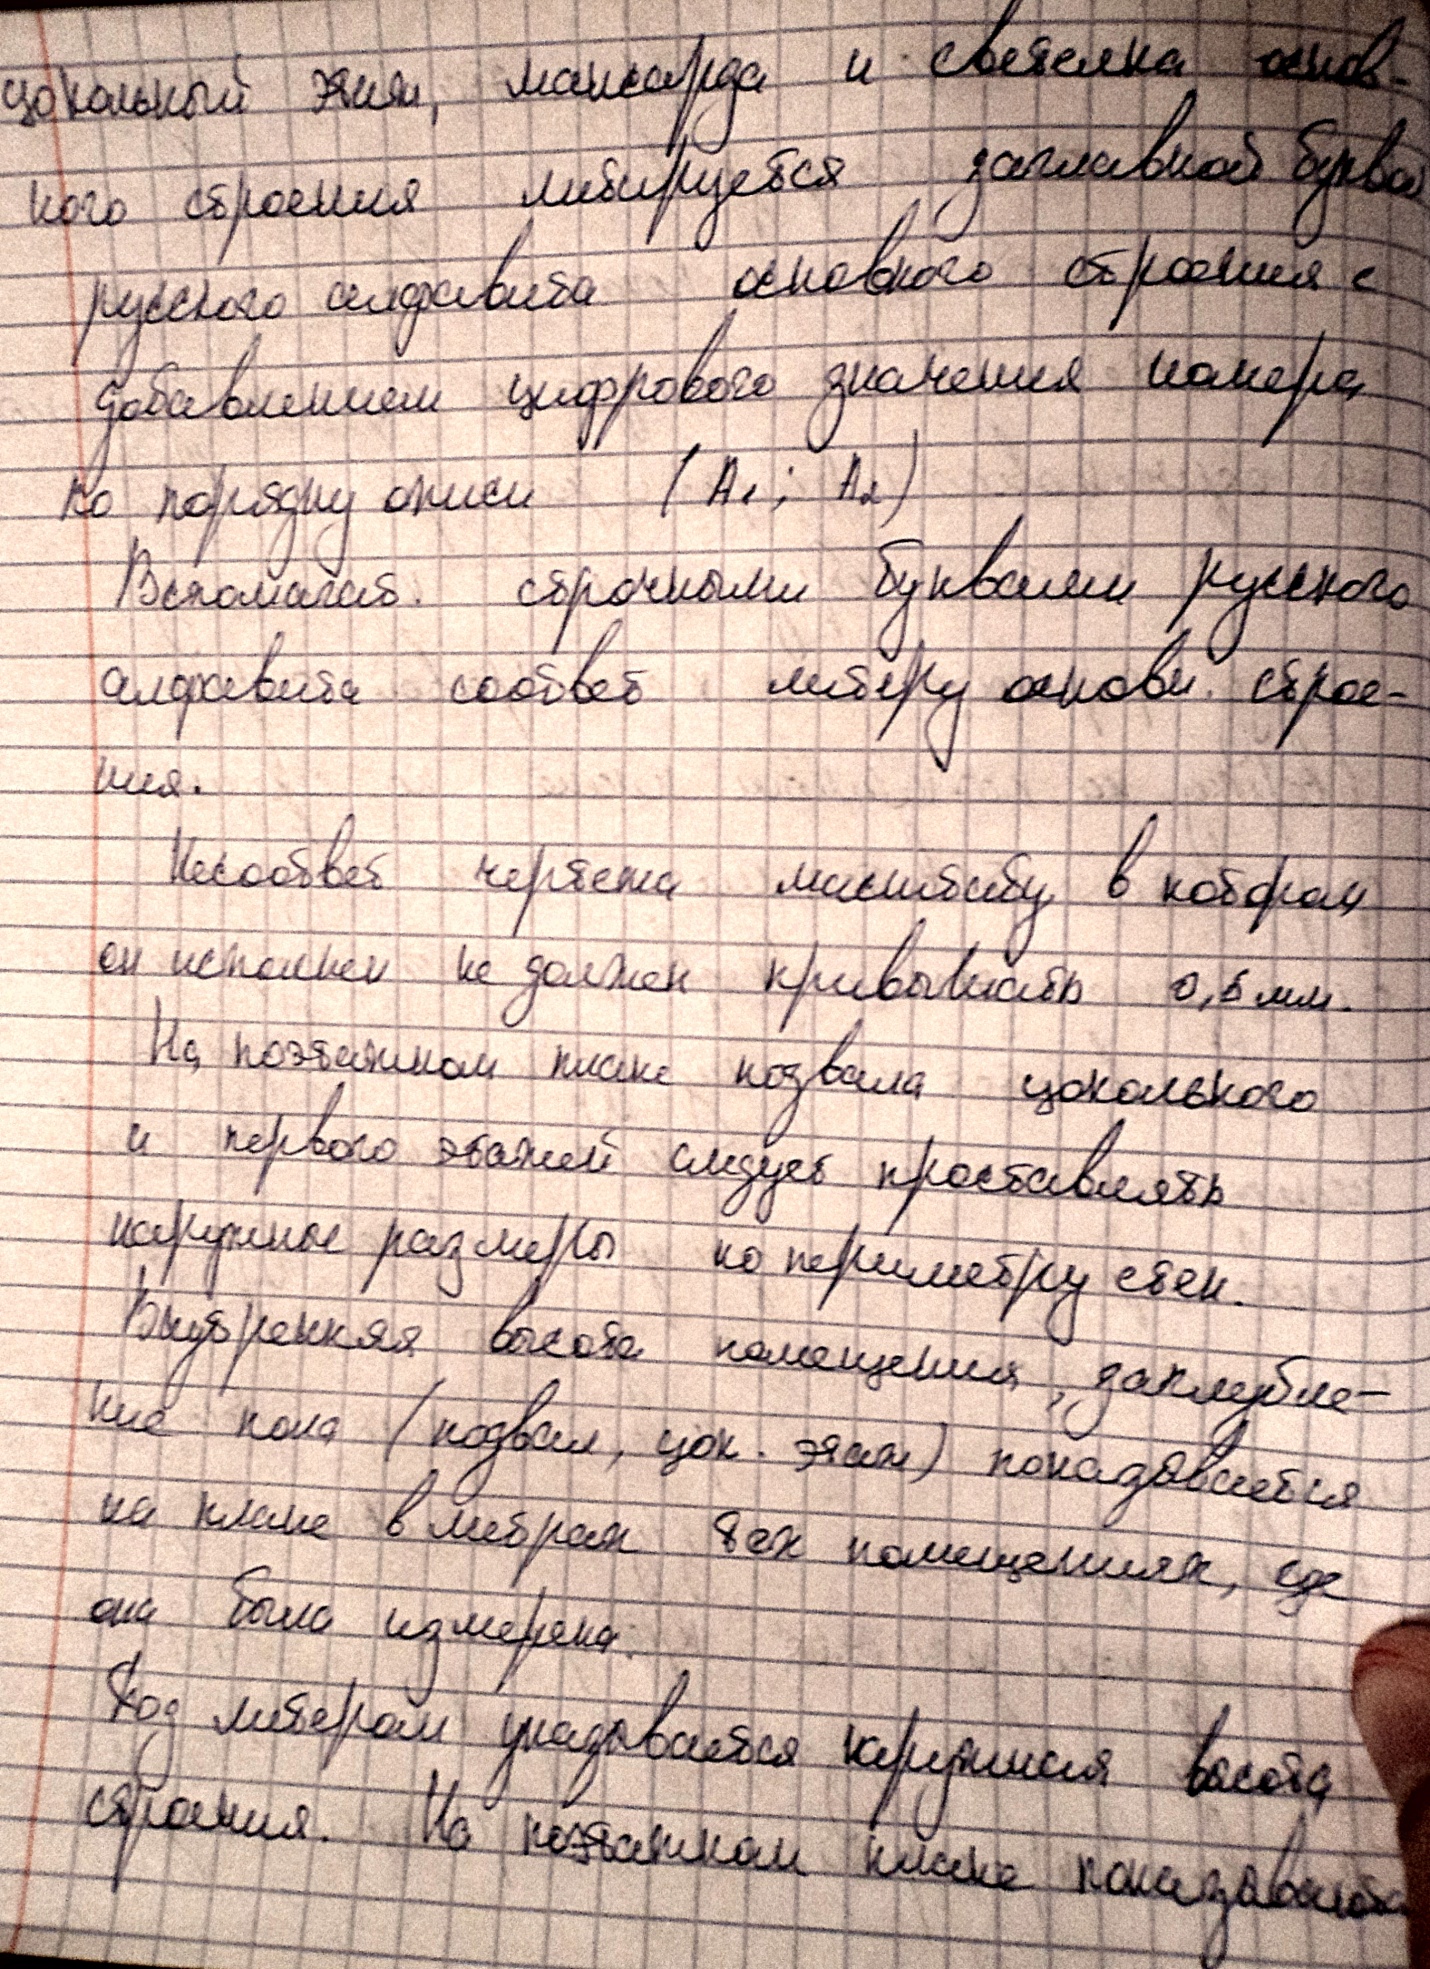 цокольный этаж, мансарда и светелка основ-
ного строения литируется заглавной буквой
русского алфавита основного строения с
добавлением цифрового значения номера
по порядку описи (А1; А2)
Вспомагат. строчными буквами русского
алфавита соответ литеру основн. строе-
ния.
Несоответ чертежа масштабу в котором
он исполнен не должен привышать 0,5 мм.
На поэтажном плане подвала цокольного
и первого этажей следует проставлять
наружные размеры по периметру стен.
Внутренняя высота помещения, заглубле-
ние пола (подвал, цок. этаж) показывается
на плане в метрах тех помещениях, где
она была измерена.
Под литером указывается наружная высота
строения. На поэтажном плане показывается